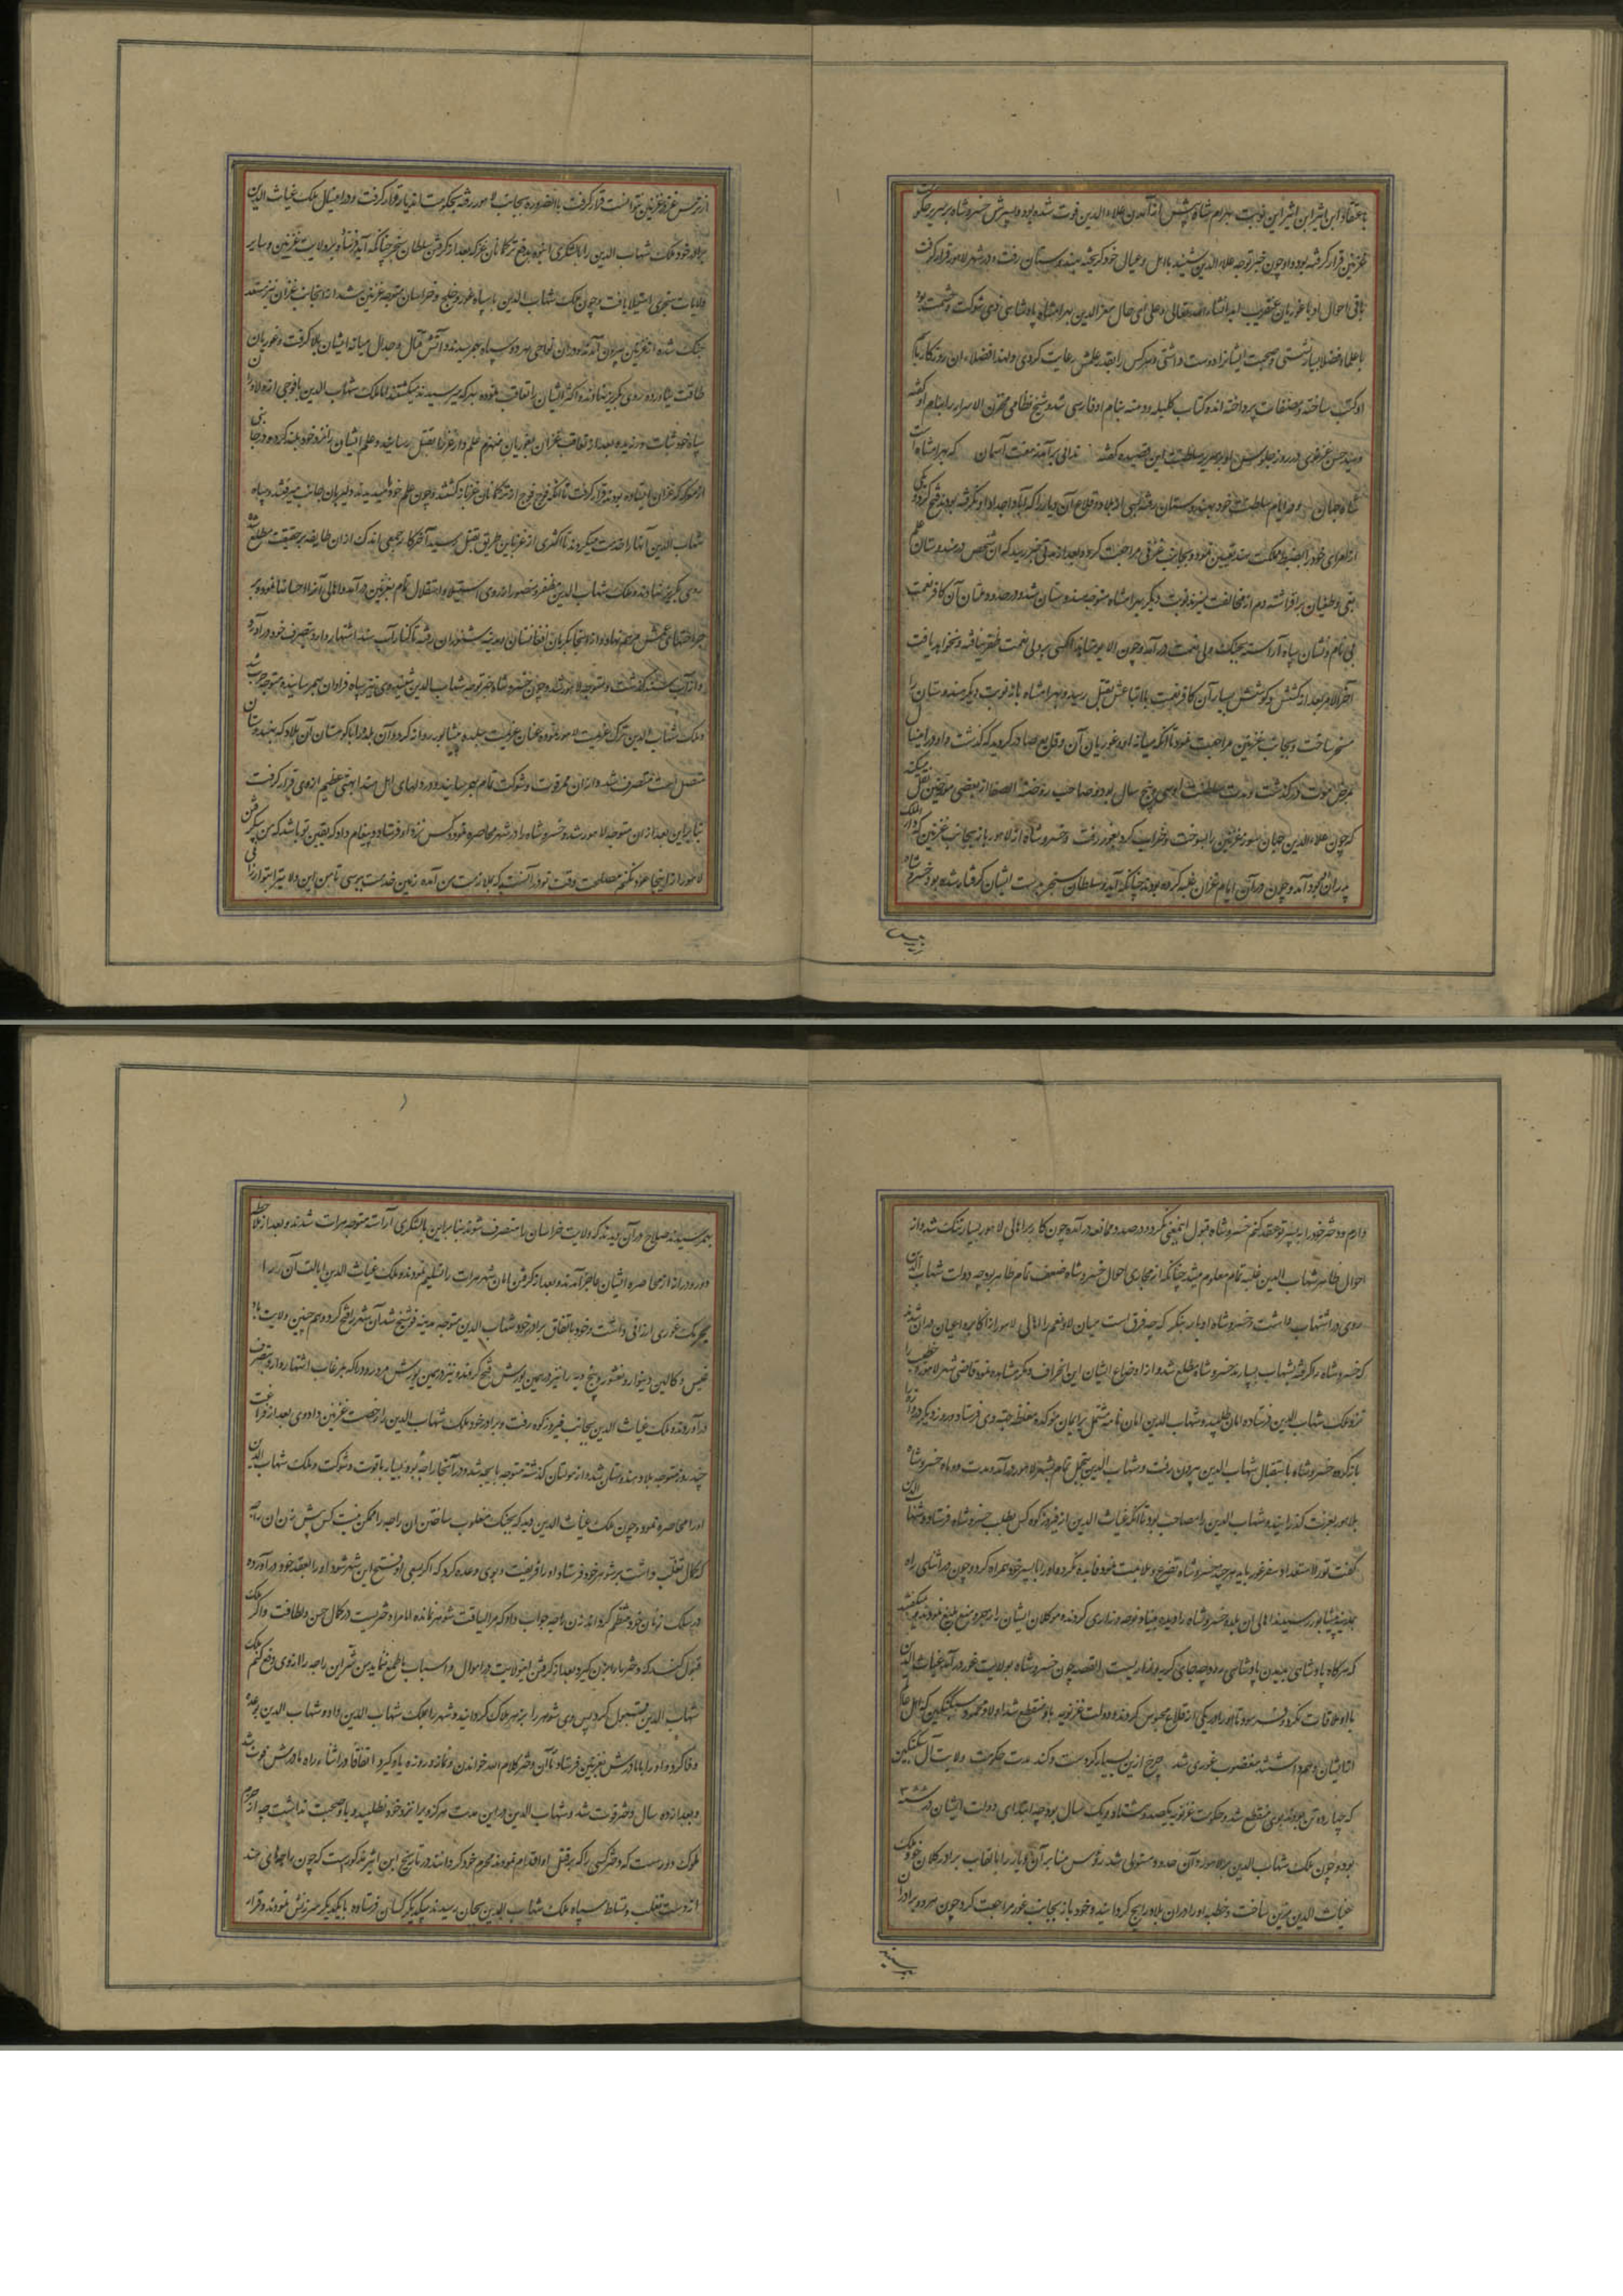 باعتقاد ابن اثیر این نوبت بهرام شاه پیش از آمدن علاء الدین فوت شده بود و پسرش خسرو شاه بر سریر حکومت
غزنین قرار گرفته بود و او چون خبر توجه علاء الدین شنید با اهل و عیال خود گریخته بهندوستان رفت و در شهر لاهور قرار گرفت
باقی احوال او با غوریان عنقریب آید انشاء الله تعالی و علی ای حال معز الدین بهرامشاه پادشاهی ذی شوکت و حشمت بود
با علما و فضلا بسیار نشستی و صحبت ایشانرا دوست داشتی و هر کس را بقدر علمش رعایت کردی ولهذا فضلاء ان روزگار بنام
او کتب ساخته و مصنفات پرداخته اند و کتاب کلیله و دمنه بنام او فارسی شد و شیخ نظامی مخزن الاسرار را بنام او گفته
و سید حسن غزنوی در روز جلوس او بر سریر سلطنت این قصیده گفته ندائی برآمد ز هفت آسمان که بهرامشاه است
شاه جهان و در ایام سلطنت خود بهندوستان رفته بسی از بلاد و قلاع آن دیار را که آبا و اجداد او نگرفته بودند فتح کرد و یکی
از امرای خود را بضبط مملکت هند تعیین نمود و بجانب غزنین مراجعت کرد و بعد از مدتی خبر رسید که ان شخص در هندوستان علم
بغی و طغیان برافراشته دم از مخالفت میزند نوبت دیگر بهرامشاه متوجه هندوستان شد و در حدود ملتان آن کافر نعمت
بی نام و نشان سپاه آراسته بجنگ ولی نعمت در آمد و چون
آخر الامر بعد از کشش و کوشش بسیار آن کافر نعمت با اتباعش بقتل رسید و بهرامشاه باز نوبت دیگر هندوستان را
مسخر ساخت و بجانب غزنین مراجعت نمود تا آنکه میانه او و غوریان آن وقایع صادر گردید که گذشت و او در این سال
بمرض موت در گذشت و مدت سلطنت او سی و پنج سال بود و صاحب روضة الصفا از بعضی مورخین نقل میکند
که چون علاء الدین جهان سوز غزنین را بسوخت و خراب کرد بغور رفت و خسرو شاه از لاهور باز بجانب غزنین که دار الملک
پدران او بود آمد و چون در آن ایام غزان غلبه کرده بودند چنانکه آید و سلطان سنجر بدست ایشان گرفتار شده بود خسرو شاه
از ترس غز در غزنین نتوانست قرار گرفت بالضروره بجانب لاهور رفته بحکومت اندیار قرار گرفت و در این سال ملک غیاث الدین
برادر خود ملک شهاب الدین را با لشکری انبوه بدفع ترکمانان غز که بعد از گرفتن سلطان سنجر چنانکه آید بر ولایت غزنین و سایر
ولایات سنجری استیلا یافت و چون ملک شهاب الدین با سپاه غور و خلج و خراسان متوجه غزنین شد از انجانب غزان نیز مستعد
جنگ شده از غزنین بیرون آمدند و در ان نواحی هر دو سپاه بهم رسیدند و آتش قتال و جدال میانه ایشان بالا گرفت و غوریان
طاقت نیاورده روی بگریز نهادند و اکثر ایشان را تعاقب نموده بهر که میرسیدند میکشتند اما ملک شهاب الدین با فوجی از دلاوران
سپاه خود ثبات ورزیده بعد از تعاقب غزان بغوریان منهزم علم دار غز را بقتل رسانید و علم ایشان را نزد خود بلند کرده در جائی
از معرکه که غزان ایستاده بودند قرار گرفت تا آنکه فوج فوج از ترکمانان غز باز گشتند و چون علم خود میدیدند دلیر بان جانب میرفتند و سپاه
شهاب الدین آنها را خدمت میکردند تا اکثری از غز باین طریق بقتل رسید آخر کار جمعی اندک از ان طایفه بر حقیقت مطلع شده
روی بگریز نهادند و ملک شهاب الدین مظفر و منصور از روی استیلا و استقلال تمام بغزنین در آمد و اهالی آنرا احسانها نمود و بر
جراحتهای غمش مرهم نهاد و از انجا بکرمان افغانستان و مدینه شنوران رفته تا کنار آب سند اشتهار دارد بتصرف خود در آورد
و از آب سند گذشت و متوجه لاهور شد و چون خسرو شاه خبر توجه شهاب الدین شنید وی نیز سپاه فراوان بهم رسانیده متوجه حرب شد
و ملک شهاب الدین ترک عزیمت لاهور نموده عنان عزیمت بجلده پیشاور روانه کرد و آن بلده را با کوهستان آن بلاد که بهندوستان
متصل است متصرف شد و از ان ممر قوت و شوکت تمام بهم رسانید و در دلهای اهل هند ابهتی عظیم از وی قرار گرفت
بنابراین بعد از ان متوجه لاهور شد و خسرو شاه را در شهر محاصره نمود و کس نزد او فرستاد و پیغام داد که یقین تو باشد که من پی گرفتن
لاهور از اینجا عزم نکنم مصلحت وقت تو در آنست که بملازمت من آمده زمین خدمت ببوسی تا من این ولایت را بتو ارزانی
دارم و دختر خود را به پسر تو عقد کنم خسرو شاه قبول اینمعنی نکرد و در صدد ممانعه در آمده چون کار بر اهالی لاهور بسیار تنگ شد و از
احوال ظاهر شهاب الدین غلبه تمام معلوم میشد چنانکه از مجاری احوال خسرو شاه ضعف تمام ظاهر بود چه دولت شهاب الدین
روی در اشتهاب داشت و خسرو شاه ادبار بنگر که چه فرق است میان لا و نعم اهالی لاهور از اکابر و اعیان در ان شدند
که خسرو شاه را گرفته بشهاب بسپارند خسرو شاه مطلع شد و از اوضاع ایشان این انحراف و مکر مشاهده نمود قاضی شهر لاهور و خطیب را
نزد ملک شهاب الدین فرستاده امان طلبید و شهاب الدین امان نامه مشتمل بر ایمان موکده مغلظه جهت وی فرستاد و روز دیگر دروازه را
باز کرده خسرو شاه باستقبال شهاب الدین بیرون رفت و شهاب الدین بتجمل تمام بشهر لاهور در آمد و مدت دو ماه خسرو شاه
بلاهور بعزت گذرانید و شهاب الدین را مصاحب بود تا آنکه غیاث الدین از فیروز کوه کس بطلب خسرو شاه فرستاد و شهاب الدین
گفت تو را مستعد او سفر غور باید هر چند خسرو شاه تضرع و ملاعبت نمود فایده نکرد و او را با پسر خود همراه کرد و چون در اثنای راه
بمدینه پیشاور رسیدند اهالی ان بلده خسرو شاه را دیده بنیاد نوحه و زاری کردند و موکلان ایشان را زجر و منع بلیغ نمودند میگفتند
که هرگاه پادشاهی بدیدن پادشاهی رود چه جای گریه و زاریست القصه چون خسرو شاه بولایت غور در آمد غیاث الدین
با او ملاقات نکرد و فرمود تا او را در یکی از قلاع محبوس کردند و دولت غزنویه باو منقطع شد اولاد محمود سبکتگین که اهل عالم
اتا ایشان و هم داشتند مغضوب غوری شد چرخ ازین بسیار کردست و کند مدت حکومت ولایت آل سبکتگین
که چهارده تن بودند بوی منقطع شد و حکومت غزنویه یکصد و هشتاد و یک سال بود چه ابتدای دولت ایشان در سنه ۳۸۸
بود و چون ملک شهاب الدین بر لاهور و آن حدود مستولی شد رؤس منابر آن دیار را بالقاب برادر کلان خود ملک
غیاث الدین مزین ساخت و خطبه او را در ان بلاد رایج گردانید و خود باز بجانب غور مراجعت کرد چون هر دو برادران
بهم رسیدند صلاح در آن دیدند که ولایت خراسان را متصرف شوند بنابراین با لشکری آراسته متوجه هرات شدند و بعد از ملاحظه
دور و دراز از محاصره ایشان عاجز آمدند و بعد از گرفتن امان شهر هرات را تسلیم نمودند و ملک غیاث الدین ایالت آن را
بیک غوری ارزانی داشت و خود باتفاق برادر خود شهاب الدین متوجه مدینه فوشنج شد آن شهر را فتح کرد و هم چنین ولایت باد
غیس و کالین و بیوار و بغشور و پنج دیه را نیز در همین یورش فتح کردند و نیز در همین یورش مرو رود را که بمرغاب اشتهار دارد بتصرف
در آوردند و ملک غیاث الدین بجانب فیروز کوه رفت و برادر خود ملک شهاب الدین را رخصت غزنین داد و وی بعد از فراغت
چند روز متوجه بلاد هندوستان شد و از مولتان گذشته متوجه باجه شد و در آنجا راجه بود بسیار با قوت و شوکت و ملک شهاب الدین
او را محاصره نمود و چون ملک غیاث الدین دید که بجنگ مغلوب ساختن ان راجه را ممکن نیست کس پیش زن ان راجه
که کمال تغلب داشت بر شوهر خود فرستاد و او را فریفت و بوی وعده کرد که اگر بسعی او فتح این شهر شود او را بعقد خود در آورده
در سلک زنان خود منتظم گرداند زن راجه جواب داد که مرا لیاقت شوهر نمانده اما مرا دختریست در کمال حسن و لطافت و اگر ملک
قبول کند که دختر مرا بزنی گیرد و بعد از گرفتن این ولایت در اموال و اسباب ما طمع ننماید من شر این راجه را از وی دفع کنم ملک
شهاب الدین قبول کرد پس وی شوهر را بزهر هلاک گردانید و شهر را بملک شهاب الدین داد و شهاب الدین بوعده
وفا کرد و او را با مادرش بغزنین فرستاد تا آن دختر کلام الله خواندن و نماز و روزه یاد گیرد اتفاقا در اثناء راه مادرش فوت شد
و بعد از ده سال دختر فوت شد و شهاب الدین در این مدت هرگز ویرا نزد خود نطلبید و با او صحبت نداشت چه از حزم
ملوک دور است که دختر کسی را که بر قتل او اقدام نموده محرم خود گردانند و در تاریخ ابن اثیر مذکور است که چون راجهای هند
از دست تغلب و تسلط سپاه ملک شهاب الدین بجان رسیدند بیکدیگر کسان فرستاده با یکدیگر سرزنش نمودند و قرار